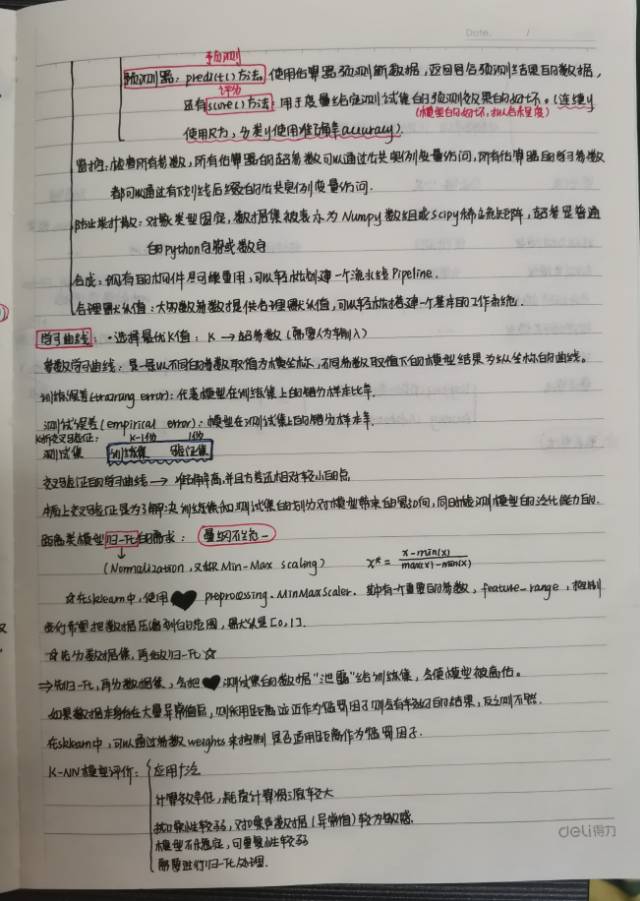 Date. /
预测
预测器：predict()方法。使用估算器预测新数据，返回包含预测结果的数据，
评分
还有score()方法：用于度量给定测试集的预测效果的好坏。(连续y
(模型的好坏，拟合程度)
使用R方，分类y使用准确率accuracy).
监控：检查所有参数，所有估算器的超参数可以通过公共实例变量访问，所有估算器的学习参数
都可以通过有下划线后缀的公共实例变量访问.
防止类扩散：对数类型固定，数据集被表示为Numpy数组或scipy稀疏矩阵，超参是普通
的python字符或数字
合成：现有的构件尽可能重用，可以轻松创建一个流水线Pipeline.
合理默认值：大多数参数提供合理默认值，可以轻松搭建一个基本的工作系统.
学习曲线：·选择最优K值：K → 超参数 (需要人为输入)
参数学习曲线：是一条以不同的参数取值为横坐标，不同参数取值下的模型结果为纵坐标的曲线。
训练误差(training error)：代表模型在训练集上的错分样本比率.
测试误差(empirical error)：模型在测试集上的错分样本率.
K折交叉验证： K-1份 1份
测试集 训练集 验证集
交叉验证的学习曲线 → 准确率高，并且方差还相对较小的点
本质上交叉验证是为了解决训练集和测试集的划分对模型带来的影响，同时检测模型的泛化能力的.
距离类模型归一化的需求： 量纲不统一
(Normalization，又称Min-Max scaling) x* = x-min(x) / max(x)-min(x)
☆在sklearn中，使用 preprocessing.MinMaxScaler. 其中有一个重要的参数，feature_range，控制
我们希望把数据压缩到的范围，默认是[0,1].
☆先分数据集，再做归一化☆
⇒先归一化，再分数据集，会把测试集的数据"泄露"给训练集，会使模型被高估。
如果数据本身存在大量异常值后，则采用距离远近作为惩罚因子则会有较好的结果，反之则不然.
在sklearn中，可以通过参数weights来控制是否适用距离作为惩罚因子.
K-NN模型评价： 应用广泛
计算效率低，耗费计算资源较大
抗噪性较弱，对噪声数据(异常值)较为敏感.
模型不稳定，可重复性较弱
需要进行归一化处理.
deli得力